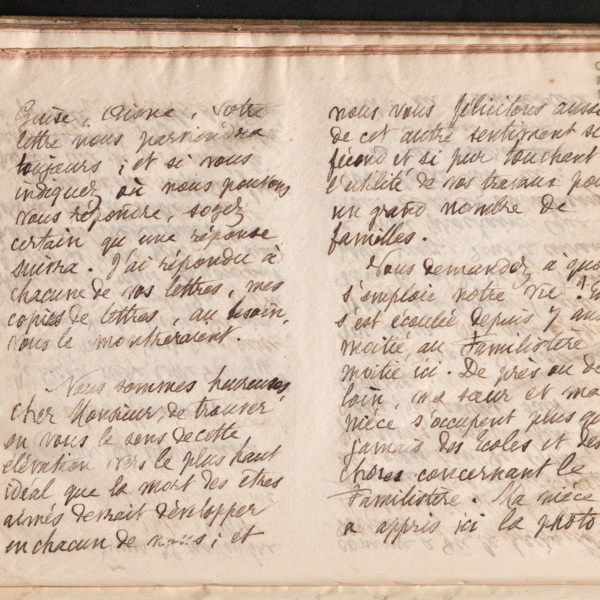 Guise, Aisne, votre
lettre nous parviendra
toujours ; et si vous
indiquez où nous pouvons
vous répondre, soyez
certain qu'une réponse
suivra. J'ai répondu à
chacune de vos lettres, mes
copies de lettres, au besoin,
vous le montreraient.
Nous sommes heureuses,
cher Monsieur, de trouver
en vous le sens de cette
élévation vers le plus haut
idéal que la mort des êtres
aimés devrait développer
en chacun de nous ; et
nous vous félicitons aussi
de cet autre sentiment si
fécond et si pur touchant
l'utilité de vos travaux pour
un grand nombre de
familles.
Vous demandez à quoi
s'emploie notre vie ?
s'est écoulée depuis 7 ans
moitié au Familistère
moitié ici. De près ou de
loin, ma sœur et ma
nièce s'occupent plus que
jamais des écoles et des
choses concernant le
Familistère. Ma nièce
a appris ici la photo